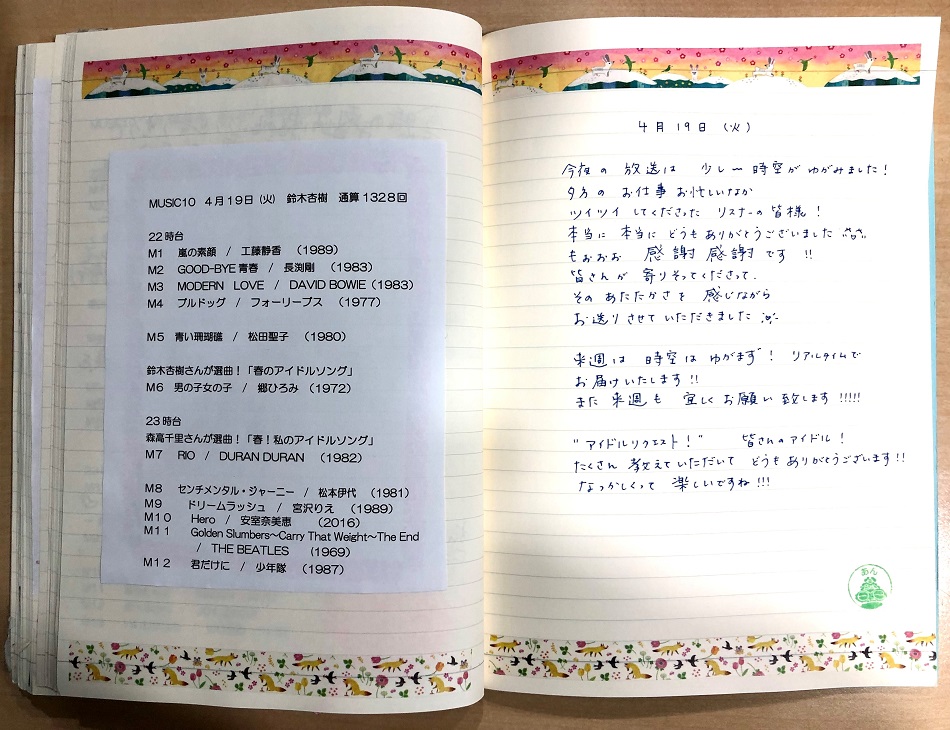 MUSIC10 4月19日(火) 鈴木杏樹 通算1328回
22時台
M1 嵐の素顔 / 工藤静香 (1989)
M2 GOOD-BYE青春 / 長渕剛 (1983)
M3 MODERN LOVE / DAVID BOWIE (1983)
M4 ブルドッグ / フォーリーブス (1977)
M5 青い珊瑚礁 / 松田聖子 (1980)
鈴木杏樹さんが選曲！「春のアイドルソング」
M6 男の子女の子 / 郷ひろみ (1972)
23時台
森高千里さんが選曲！「春！私のアイドルソング」
M7 RIO / DURAN DURAN (1982)
M8 センチメンタル・ジャーニー / 松本伊代 (1981)
M9 ドリームラッシュ / 宮沢りえ (1989)
M10 Hero / 安室奈美恵 (2016)
M11 Golden Slumbers～Carry That Weight～The End
/ THE BEATLES (1969)
M12 君だけに / 少年隊 (1987)
4月19日 (火)
今夜の 放送は 少し〜 時空が ゆがみました！
夕方の お仕事 お忙しいなか
ツイツイ してくださった リスナーの皆様！
本当に 本当に どうもありがとうございました
もぉぉぉ 感謝 感謝です !!
皆さんが 寄りそってくださって、
その あたたかさを 感じながら
お送りさせていただきました
来週は 時空は ゆがまず！ リアルタイムで
お届けいたします!!
また 来週も 宜しくお願い致します!!!!!
"アイドルリクエスト！" 皆さんのアイドル！
たくさん 教えていただいて どうもありがとうございます!!
なつかしくって 楽しいですね!!!
あん